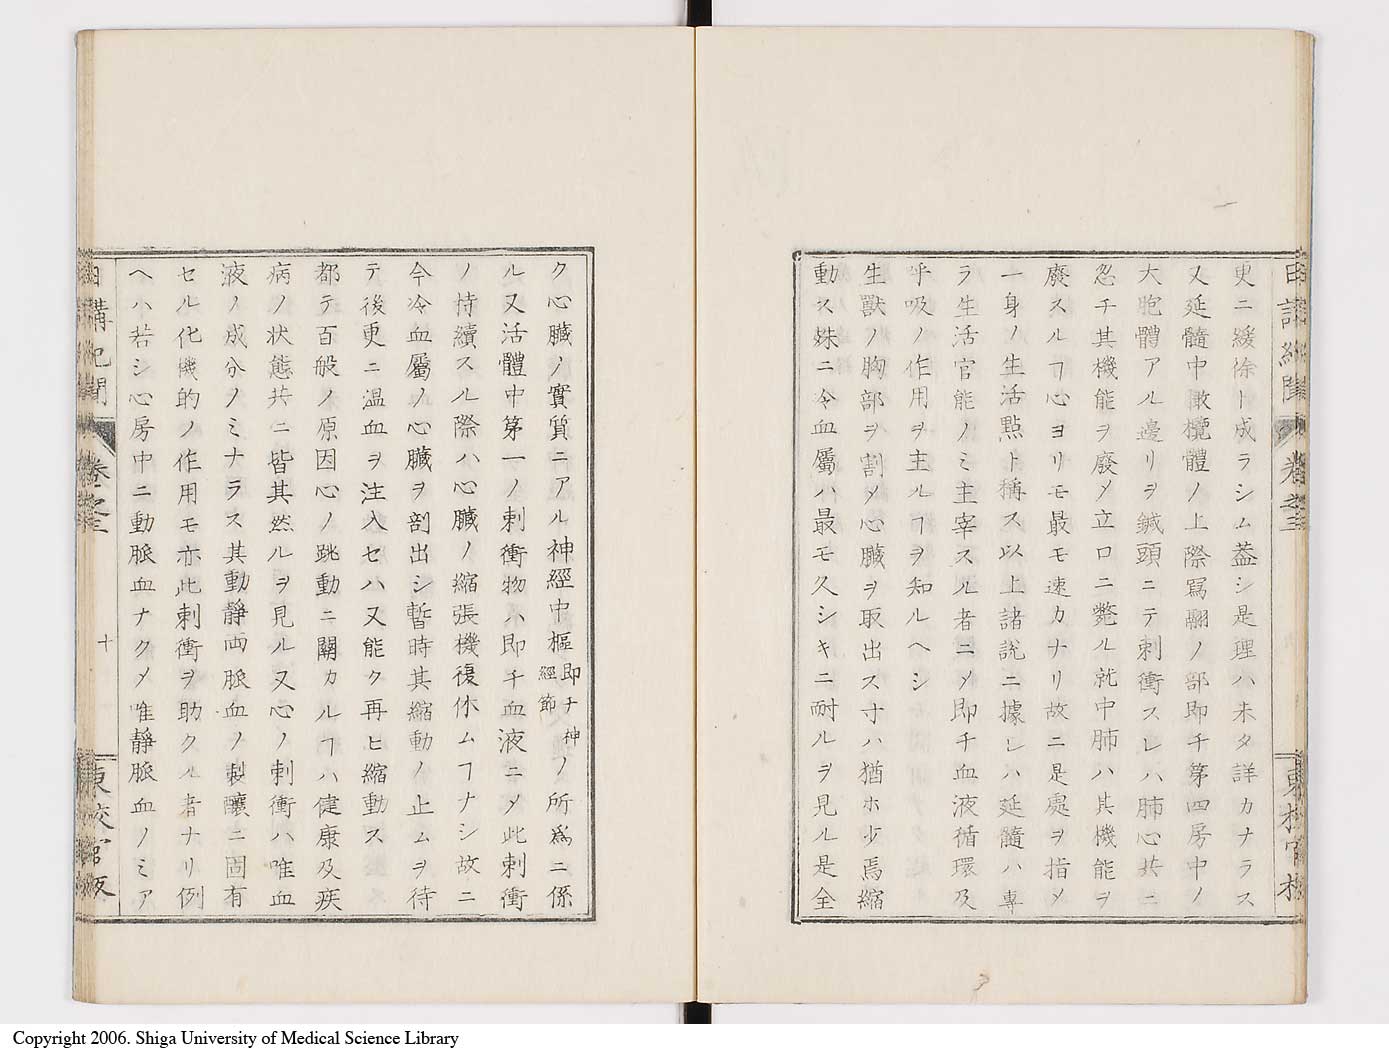 更ニ緩徐ト成ラシム葢シ是理ハ未タ詳カナラス
又延髓中橄欖體ノ上際冩翮ノ部即チ第四房中ノ
大胞體アル邊リヲ鍼頭ニテ刺衝スレハ肺心共ニ
忽チ其機能ヲ廢メ立ロニ斃ル就中肺ハ其機能ヲ
廢スルヿ心ヨリモ最モ速カナリ故ニ是處ヲ指メ
一身ノ生活點ト稱ス以上諸説ニ據レハ延髓ハ專
ラ生活官能ノミ主宰スル者ニメ即チ血液循環及
乎吸ノ作用ヲ主ルヿヲ知ルヘシ
生獸ノ胸部ヲ割メ心臓ヲ取出ス寸ハ猶ホ少焉縮
動ス姝ニ令血屬ハ最モ久シキニ耐ルヲ見ル是全
日講紀聞 卷之三
東校官板
ク心臓ノ實質ニアル神經中樞即チ神經節ノ所爲ニ係
ル又活體中第一ノ刺衝物ハ即チ血液ニメ此刺衝
ノ持續スル際ハ心臓ノ縮張機復休ムヿナシ故ニ
今冷血屬ノ心臓ヲ剖出シ暫時其縮動ノ止ムヲ待
テ後更ニ温血ヲ注入セハ又能ク再ヒ縮動ス
都テ百般ノ原因心ノ跳動ニ關カルヿハ健康及疾
病ノ状態共ニ皆其然ルヲ見ル又心ノ刺衝ハ唯血
液ノ成分ノミナラス其動靜両脈血ノ製釀ニ固有
セル化機的ノ作用モ亦此刺衝ヲ助クル者ナリ例
ヘハ若シ心房中ニ動脈血ナクメ唯靜脈血ノミア
日講紀聞 卷之三 十
東校官板